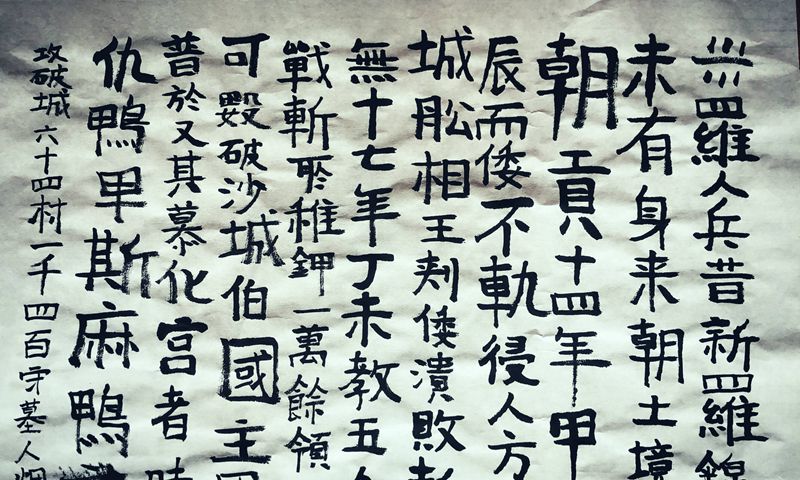 羅人兵昔新羅錦
未有身来朝土境
朝貢十四年甲
辰而倭不軌侵人方
城舩相王刾倭潰敗
無十七年丁未教五
戰斬稚鉀一萬餘領
可破沙城伯國主
普於又其慕化官者
仇鴨甲斯麻鴨
攻破城六十四村一千四百守墓人烟